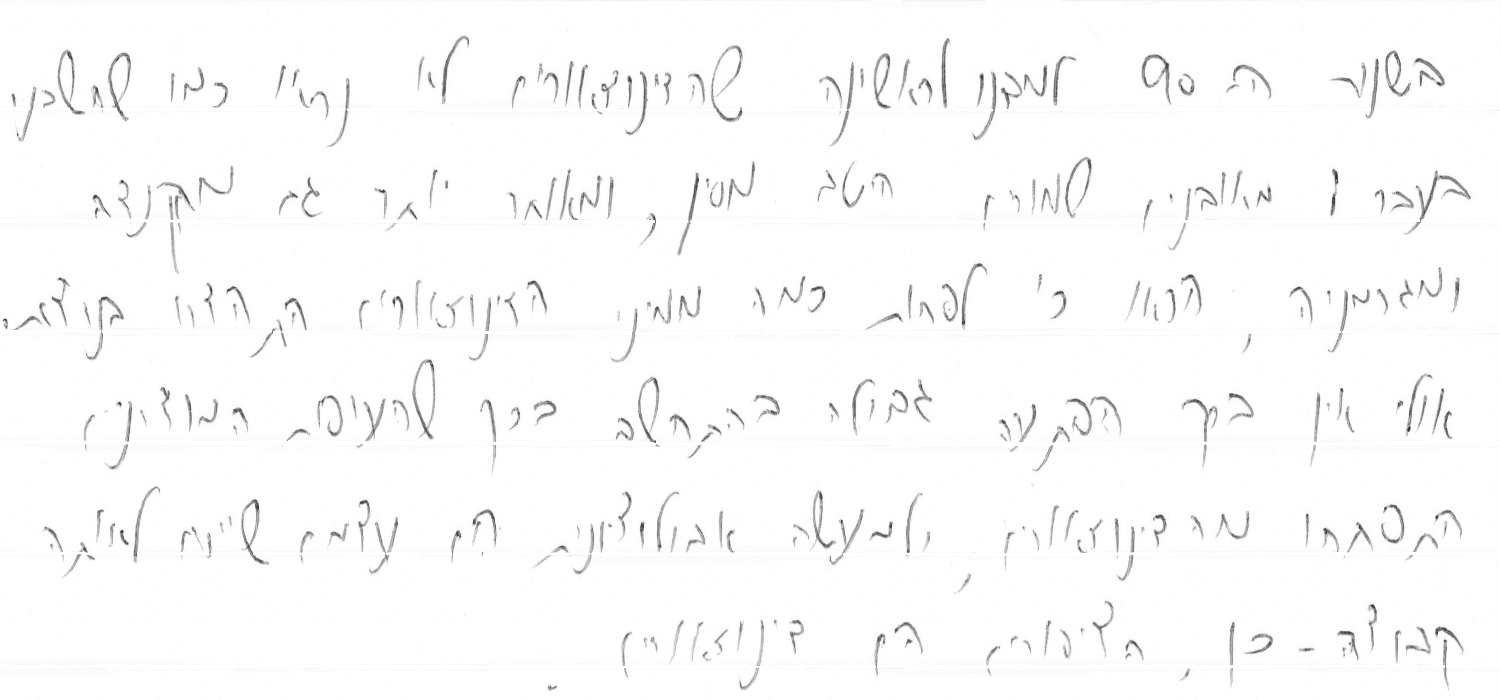 בשנות ה 90 למבנו לראשינה שהדינוזאורים לא נראו כמו שחשבני
בעבר! מאובנים שמורים היטב מסין, ומאוחר יותר גם מקנדה
ומגרמניה, הראו כי לפחות כמה ממיני הדינוזאורים התהדרו בנוצות.
אולי אין בכך הפתעה גבולה בהתחשב בכך שהעופות המודרניים
התפתחו מהדינוזאורים, ולמעשה אבולוציונית הם עצמם שייכים לאותה
קבוצה - כן, הציפורים הם דינוזאורים.